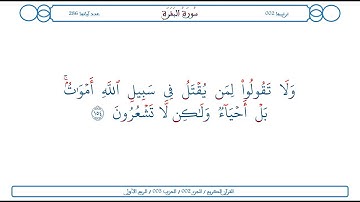 ترتيبها 002
سُورَةُ البَقَرَةِ
عدد آياتها 286
وَلَا تَقُولُوا۟ لِمَن يُقْتَلُ فِى سَبِيلِ ٱللَّهِ أَمْوَٰتٌۢ ۚ
بَلْ أَحْيَآءٌ وَلَـٰكِن لَّا تَشْعُرُونَ ١٥٤
القرآن الكريم / الجزء 002 / الحزب 003 / الربع الأول